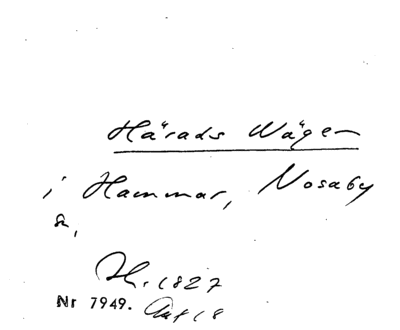 Härads Vägen
i Hammar, Nosaby
1827
Nr 7949.